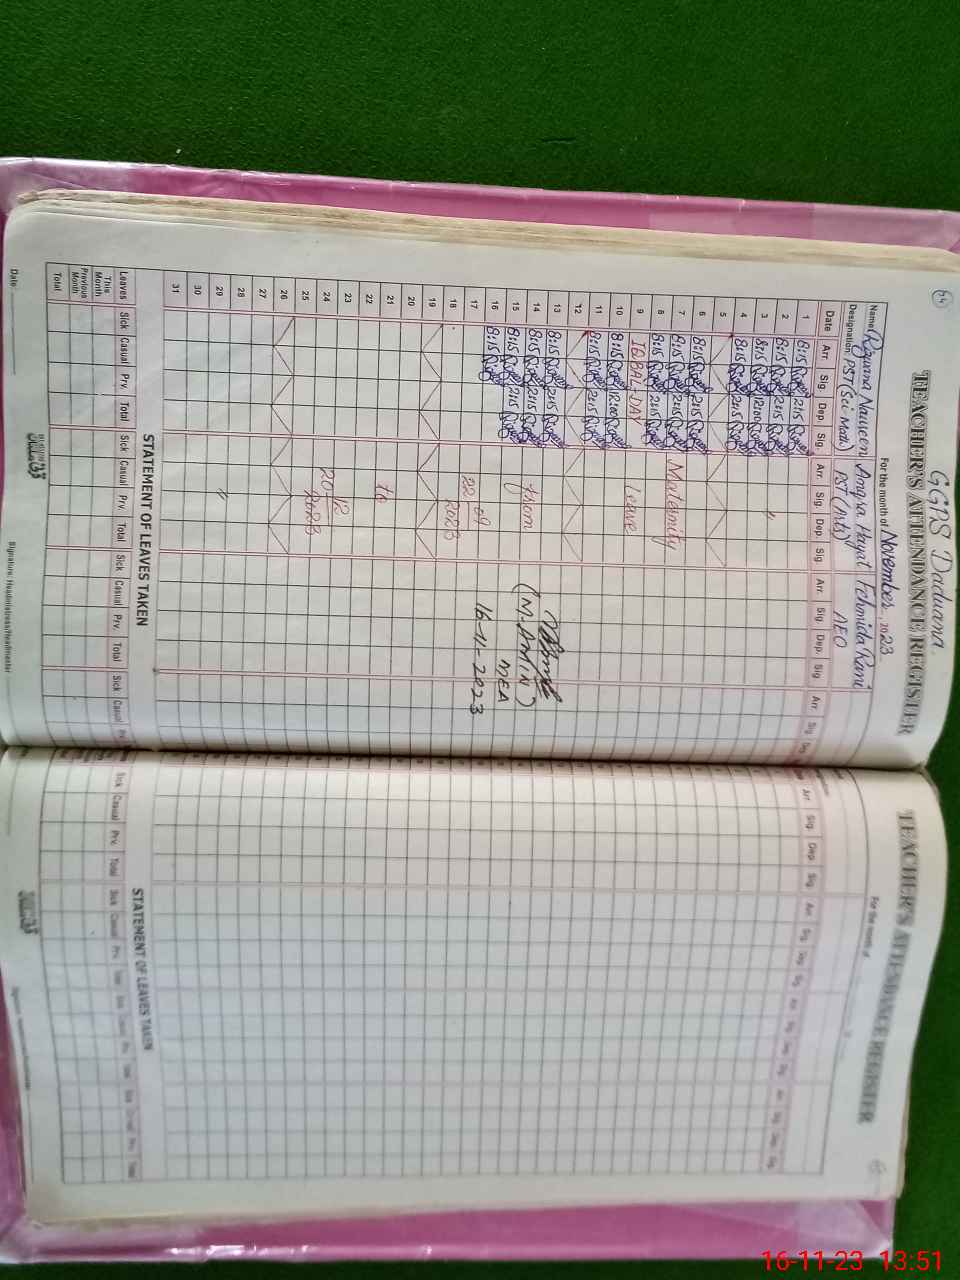 24
GGPS Daduana.
TEACHER'S ATTENDANCE REGISTER
For the month of November 2023
Name: Rizwana Nasreen Amgra Hayat Fehmida Rani
Designation: PST (Sci-Math) PST (Arts) AEO
Date Arr. Sig. Dep. Sig. Arr. Sig. Dep. Sig. Arr. Sig. Dep. Sig. Arr. Sig. Dep.
1 8:15 2:15
2 8:15 2:15
3 8:15 12:00 "
4 8:15 2:15
5
6 8:15 2:15
7 8:15 2:15 Maternity
8 8:15 2:15
9 IQBAL-DAY leave
10 8:15 12:00
11 8:15 2:15
12
13 8:15 2:15
14 8:15 2:15 from (M. AMIN)
15 8:15 2:15 MEA
16 8:15 16-11-2023
17 22 09
18 2023
19
20
21 to
22
23
24 20 12
25 2023
26
27
28
29 "
30
31
STATEMENT OF LEAVES TAKEN
Leaves Sick Casual Prv. Total Sick Casual Prv. Total Sick Casual Prv. Total Sick Casual Prv.
This Month
Previous Month
Total
Date:
Signature: Headmistress/Headmaster
TEACHER'S ATTENDANCE REGISTER
For the month of
Arr. Sig. Dep. Sig. Arr. Sig. Dep. Sig. Arr. Sig. Dep. Sig. Arr. Sig. Dep. Sig.
STATEMENT OF LEAVES TAKEN
Sick Casual Prv. Total Sick Casual Prv. Total Sick Casual Prv. Total Sick Casual Prv. Total
16-11-23 13:51